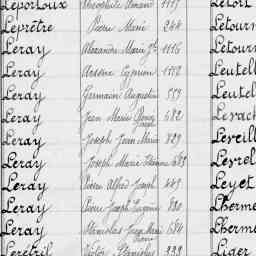 Leportoux Théophile Amand 1115 Letort
Leprêtre Pierre Marie 244 Letourn
Leray Alexandre Marie 1116 Letourn
Leray Arsène Cyprien 1117 Leutell
Leray Germain Augustin 559 Leutel
Leray Jean Marie 682 Levach
Leray Joseph Jean Marie 829 Leveill
Leray Joseph Marie 683 Levrel
Leray Pierre Alfred Joseph 449 Leyet
Leray Pierre Joseph Eugène 880 Lherme
Leray Stanislas Jean Marie 684 Lherme
Lerétril Victor Stanislas 238 Liger